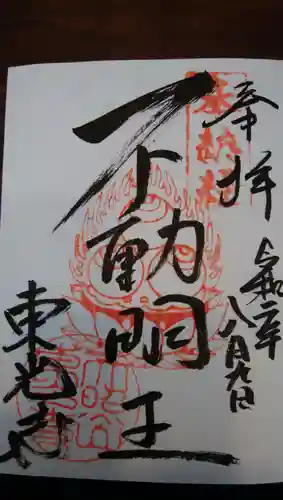 奉拝
令和二年
八月九日
不動明王
東光寺